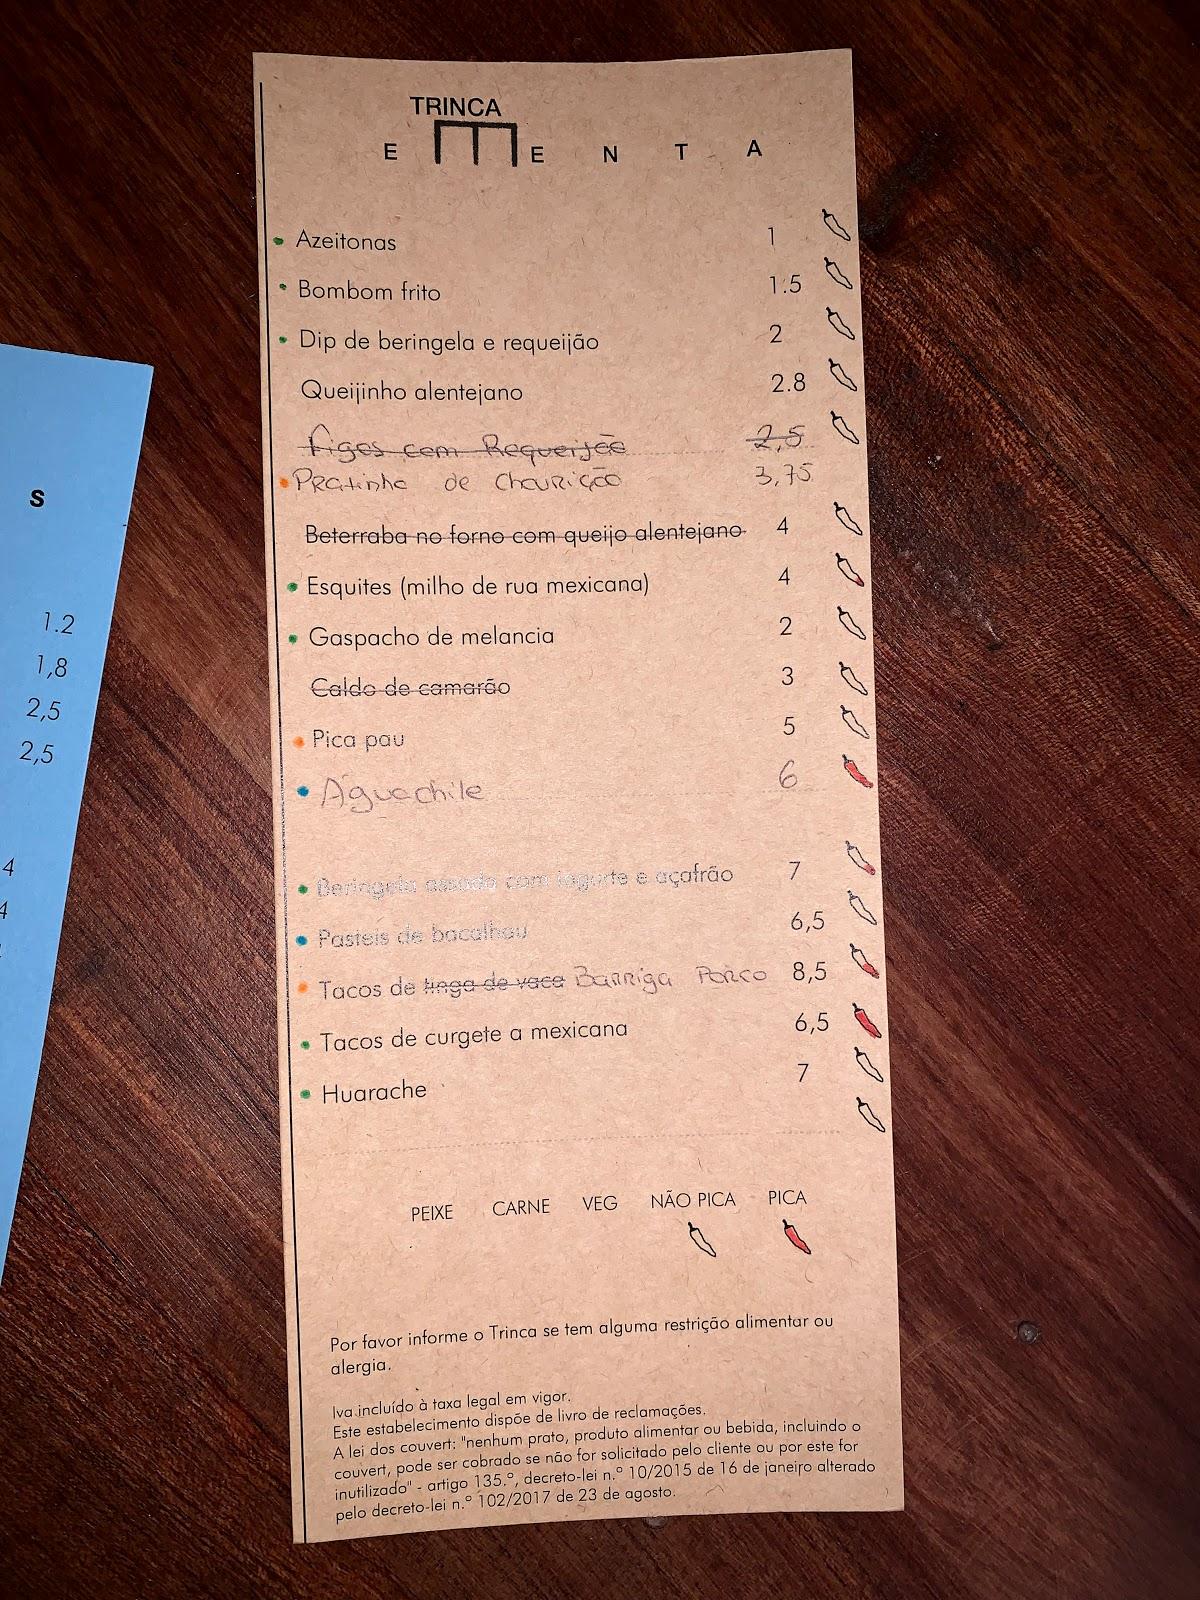 TRINCA
E M E N T A
Azeitonas 1
Bombom frito 1.5
Dip de beringela e requeijão 2
Queijinho alentejano 2.8
Figos com Requeijão 2,5
Pratinho de Chourição 3,75
Beterraba no forno com queijo alentejano 4
Esquites (milho de rua mexicana) 4
Gaspacho de melancia 2
Caldo de camarão 3
Pica pau 5
Aguachile 6
Beringela assada com iogurte e açafrão 7
Pasteis de bacalhau 6,5
Tacos de linga de vaca Barriga Porco 8,5
Tacos de curgete a mexicana 6,5
Huarache 7
PEIXE CARNE VEG NÃO PICA PICA
Por favor informe o Trinca se tem alguma restrição alimentar ou
alergia.
Iva incluído à taxa legal em vigor.
Este estabelecimento dispõe de livro de reclamações.
A lei dos couvert: "nenhum prato, produto alimentar ou bebida, incluindo o
couvert, pode ser cobrado se não for solicitado pelo cliente ou por este for
inutilizado" - artigo 135.º, decreto-lei n.º 10/2015 de 16 de janeiro alterado
pelo decreto-lei n.º 102/2017 de 23 de agosto.
S
1.2
1,8
2,5
2,5
4
4